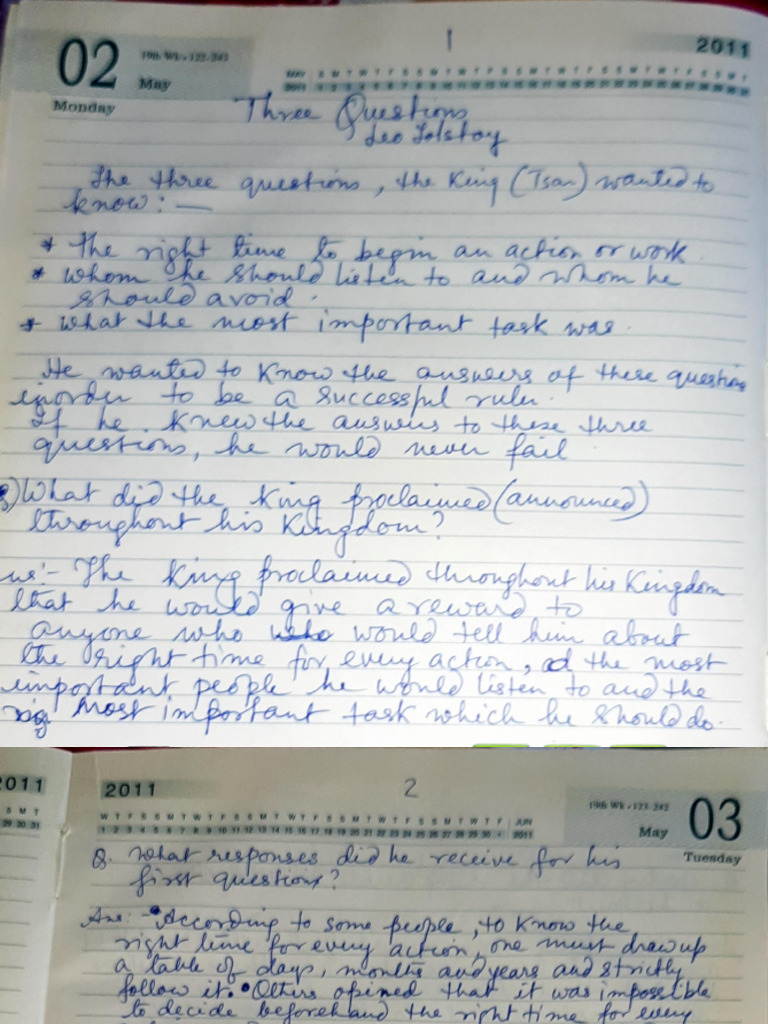 1
02
19th Wk • 122-243
May
2011
Monday
MAY S M T W T F S S M T W T F S S M T W T F S S M T W T F S S M T
2011 1 2 3 4 5 6 7 8 9 10 11 12 13 14 15 16 17 18 19 20 21 22 23 24 25 26 27 28 29 30 31
Three Questions
Leo Tolstoy
The three questions, the King (Tsar) wanted to
know: —
* the right time to begin an action or work.
* whom he should listen to and whom he
should avoid.
* what the most important task was.
He wanted to know the answers of these questions
inorder to be a successful ruler.
If he knew the answers to these three
questions, he would never fail
What did the King proclaimed (announced)
throughout his Kingdom?
ns:- The King proclaimed throughout his Kingdom
that he would give a reward to
anyone who would tell him about
the right time for every action, the most
important people he would listen to and the
most important task which he should do.
2011
S M T
29 30 31
2011
2
19th Wk • 123-242
May
03
Tuesday
W T F S S M T W T F S S M T W T F S S M T W T F S S M T W T F • JUN
1 2 3 4 5 6 7 8 9 10 11 12 13 14 15 16 17 18 19 20 21 22 23 24 25 26 27 28 29 30 • 2011
Q. What responses did he receive for his
first questions?
Ans:- • According to some people, to know the
right time for every action, one must draw up
a table of days, months and years and strictly
follow it. • Others opined that it was impossible
to decide beforehand the right time for every